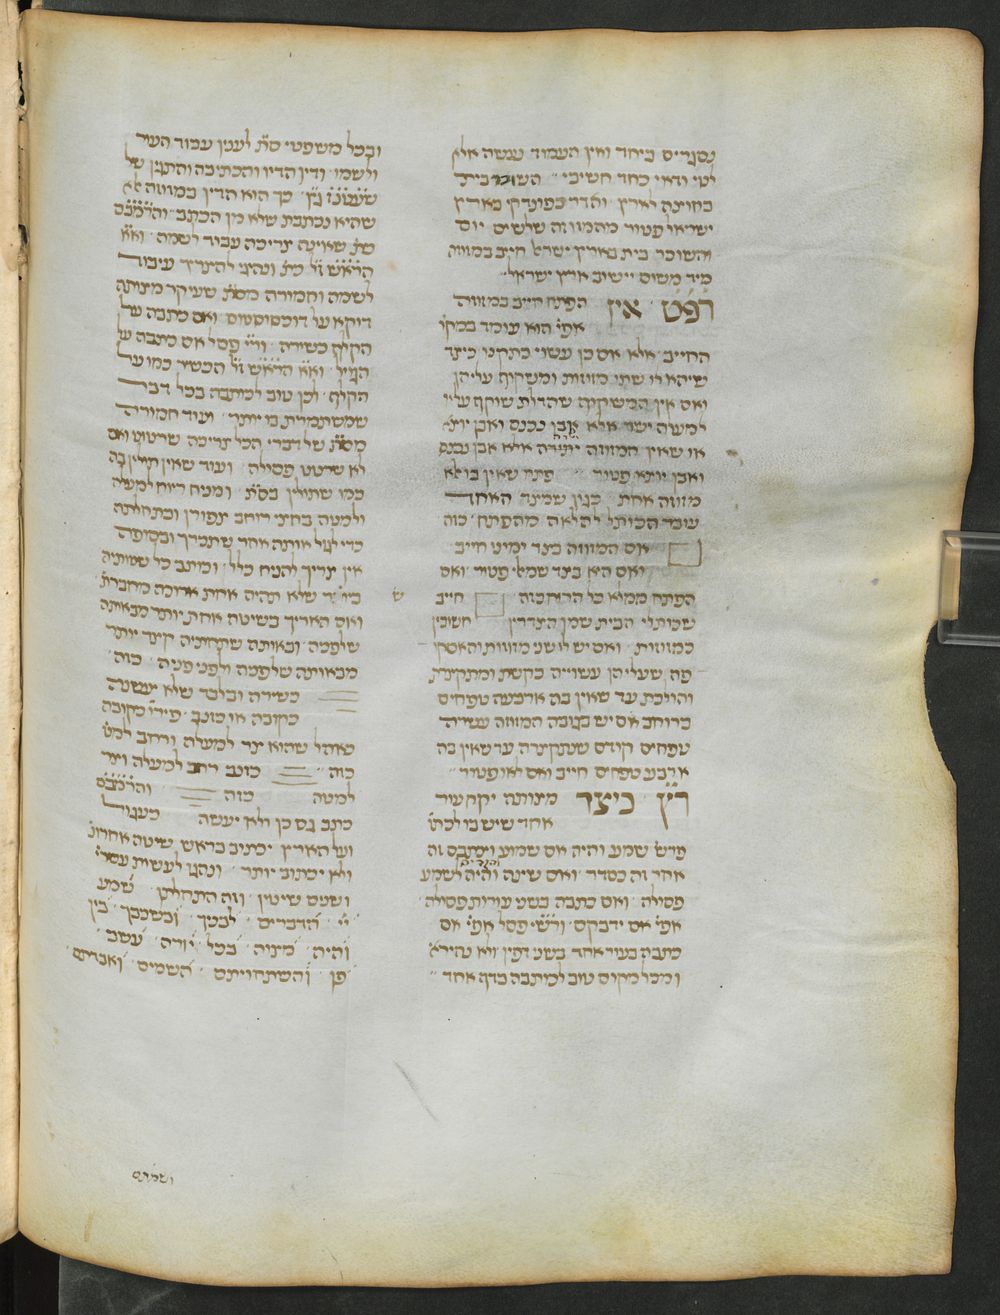 נסגרים ביחד ואין העמוד עושה אלא
לפי ודאי כחד חשיבי השוכר בית
בחוצה לארץ והדר בפונדקי בארץ
ישראל פטור מהמזוזה שלשים יום
והשוכר בית בארץ ישראל חייב במזוזה
מיד משום יישוב ארץ ישראל
רפט אין הפתח חייב במזוזה
אפי' הוא עומד במקו'
החייב אלא אם כן עשוי כתקונו כיצד
שיהא לו שתי מזוזות ומשקוף עליהן
ואם אין המשקוף שהדלת שוקף עליו
למעלה ישר אלא אבן נכנס ואבן יוצא
או שאין המזוזה ישרה אלא אבן נכנס
ואבן יוצא פטור פתח שאין בו אלא
מזוזה אחת כגון שמצד האחד
עובר הכותל להלאה מהפתח כזה
אם המזוזה בצד ימינו חייב
ואם היא בצד שמאל פטור ואם
הפתח ממלא כל הרוח כזה חייב
שכותלי הבית שמן הצדדין חשובין
כמזוזות ואם יש לו שני מזוזות והאסקו
פה שעליהן עשויה כקשת ומתקצרת
והולכת עד שאין בה ארבעה טפחים
ברוחב אם יש בגובה המזוזה עשרה
טפחים קודם שנתקצרה עד שאין בה
ארבע טפחים חייב ואם לאו פטור
רץ כיצד מצותה יקח עור
אחד שיש בו לכתו'
פרש' שמע והיה אם שמוע ויכתבם זה
אחר זה כסדר ואם שינה והקדים והיה לשמע
פסולה ואם כתבה בשני עורות פסולה
אפי' אם ידבקם ורש"י פסל אפי' אם
כתבה בעור אחד בשני דפין ולא נהירא
ומכל מקום טוב לכותבה בדף אחד
ובכל משפטי ס"ת לענין עבוד העור
ולשמו ודין הדיו והכתיבה והתגין של
שעטנז גץ כך הוא הדין במזוזה לא
שהיא נכתבת שלא מן הכתב והרמב"ם
כת' שאינה צריכה עבוד לשמה וא"א
הרא"ש ז"ל כת' ונהגו להצריך עיבוד
לשמה וחמורה מס"ת שעיקר מצותה
דוקא על דוכסוסטוס ואם כתבה על
הקלף כשירה ור"י פסל אם כתבה על
הגויל וא"א הרא"ש ז"ל הכשיר כמו על
הקלף ולכן טוב לכותבה בכל דבר
שמשתמרת בו יותר ועוד חמורה
מס"ת של דברי הכל צריכה שרטוט ואם
לא שרטט פסולה ועוד שאין תולין בה
כמו שתולין בס"ת ומניח ריוח למעלה
ולמטה בחצי רוחב צפורן ובתחלתה
כדי לגול אותה אחר שתכרך ובסופה
אין צריך להניח כלל וכותב כל שטותיה
ביושר שלא תהיה אחת ארוכה מחברת'
ש
ואם האריך בשיטה אחת יותר מבאותה
שלפניה ובאותה שתחתיה קצר יותר
מבאותה שלפניה ולפני פניה כזה
כשירה ובלבד שלא יעשנה
כקובה או כזנב פירו' כקובה
כאהל שהוא צר למעלה ורחב למט'
כזה כזנב רחב למעלה וצר
למטה כזה והרמב"ם
כתב גם כן ולא יעשה כעגול
ועל הארץ יכתוב בראש שיטה אחרונ'
ולא יכתוב יותר ונהגו לעשות עשרי'
ושנים שיטין וזה התחלתן שמע
יי' הדברים לבנך ובשכבך בין
והיה מצוה בכל יורה עשב
פן והשתחויתם השמים ואבדתם
ושמתם